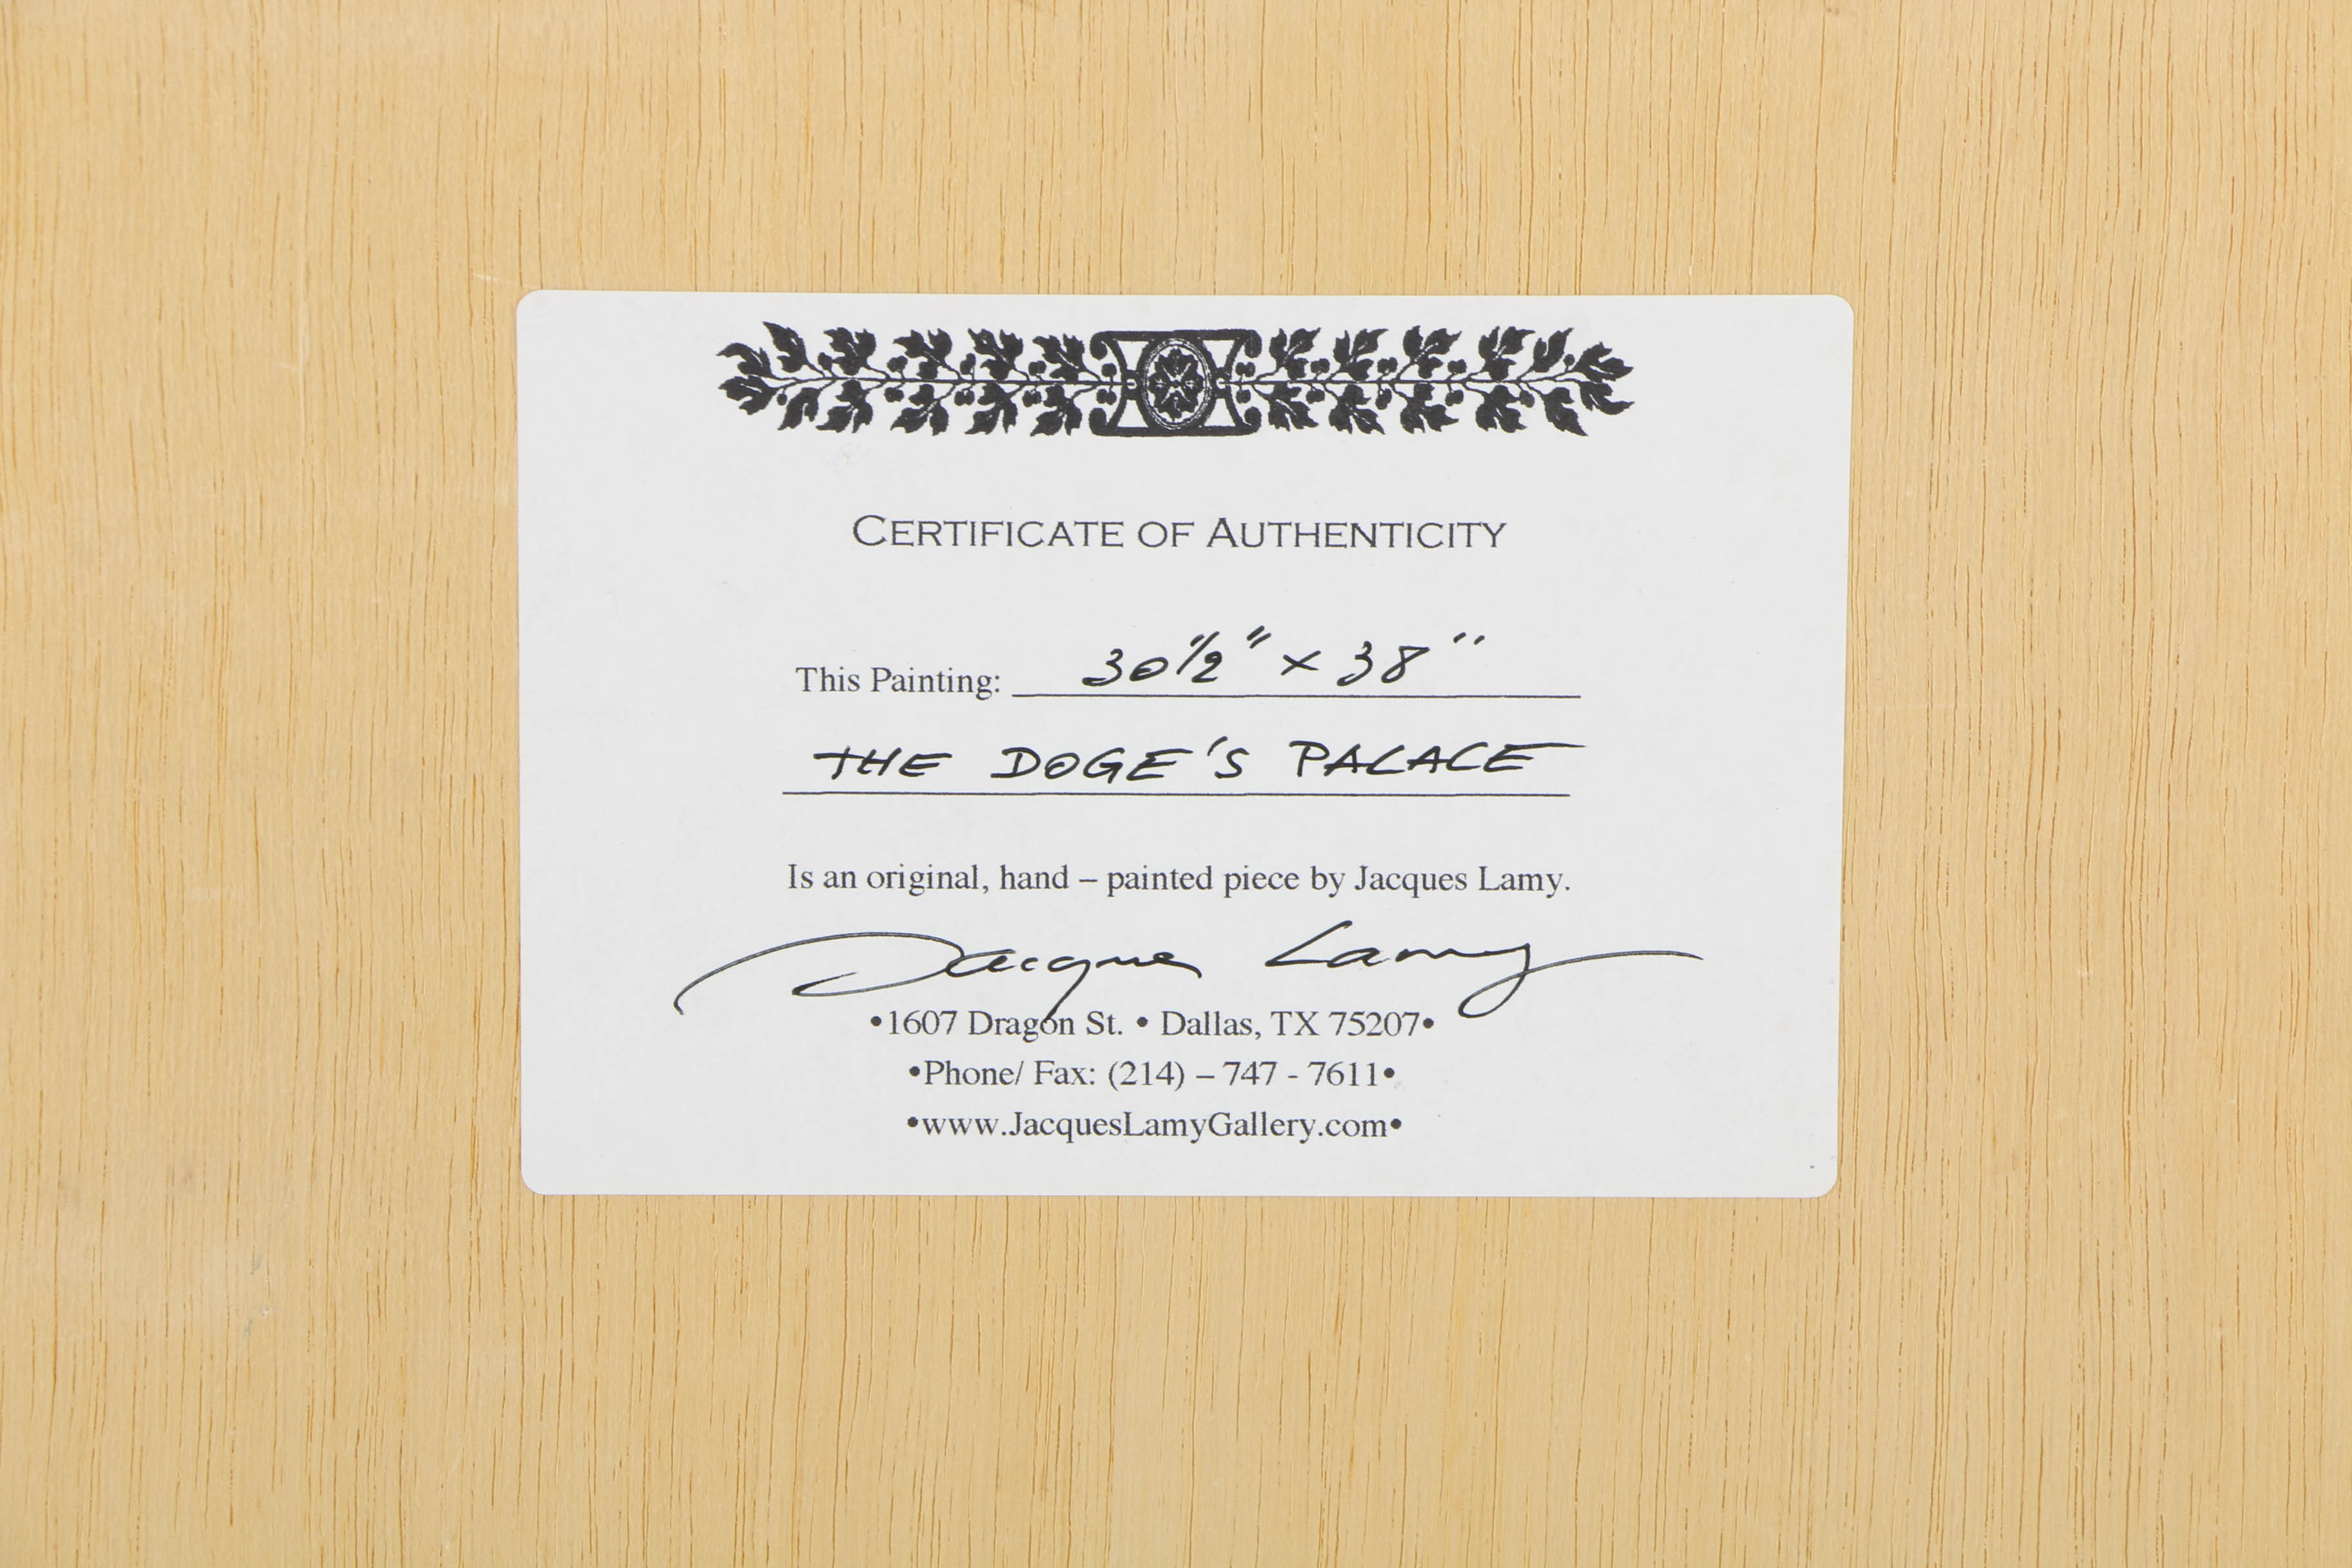 CERTIFICATE OF AUTHENTICITY
This Painting: 30 1/2" x 38"
THE DOGE'S PALACE
Is an original, hand – painted piece by Jacques Lamy.
Jacques Lamy
•1607 Dragon St. • Dallas, TX 75207•
•Phone/ Fax: (214) – 747 - 7611•
•www.JacquesLamyGallery.com•